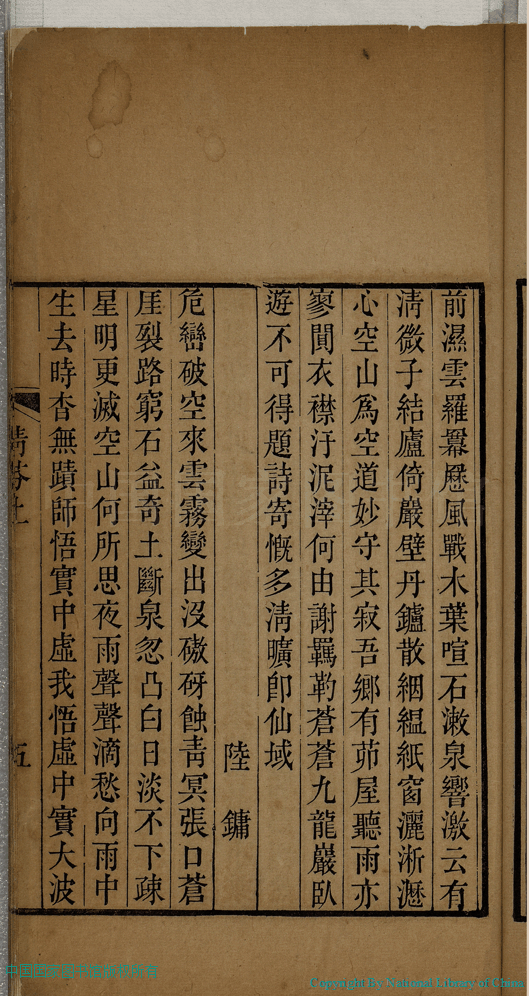 前濕雲羅羃歷風戰木葉喧石漱泉響激云有
淸微子結廬倚巖壁丹鑪散絪縕紙窗灑淅瀝
心空山爲空道妙守其寂吾鄉有茆屋聽雨亦
寥閴衣襟汙泥滓何由謝羈靮蒼蒼九龍巖臥
遊不可得題詩寄慨多淸曠卽仙域
陸鏞
危巒破空來雲霧變出沒磝砑蝕靑冥張口蒼
厓裂路窮石益奇土斷泉忽凸白日淡不下疎
星明更滅空山何所思夜雨聲聲滴愁向雨中
生去時杳無蹟師悟實中虛我悟虛中實大波
淸芬上
五
Copyright By National Library of China